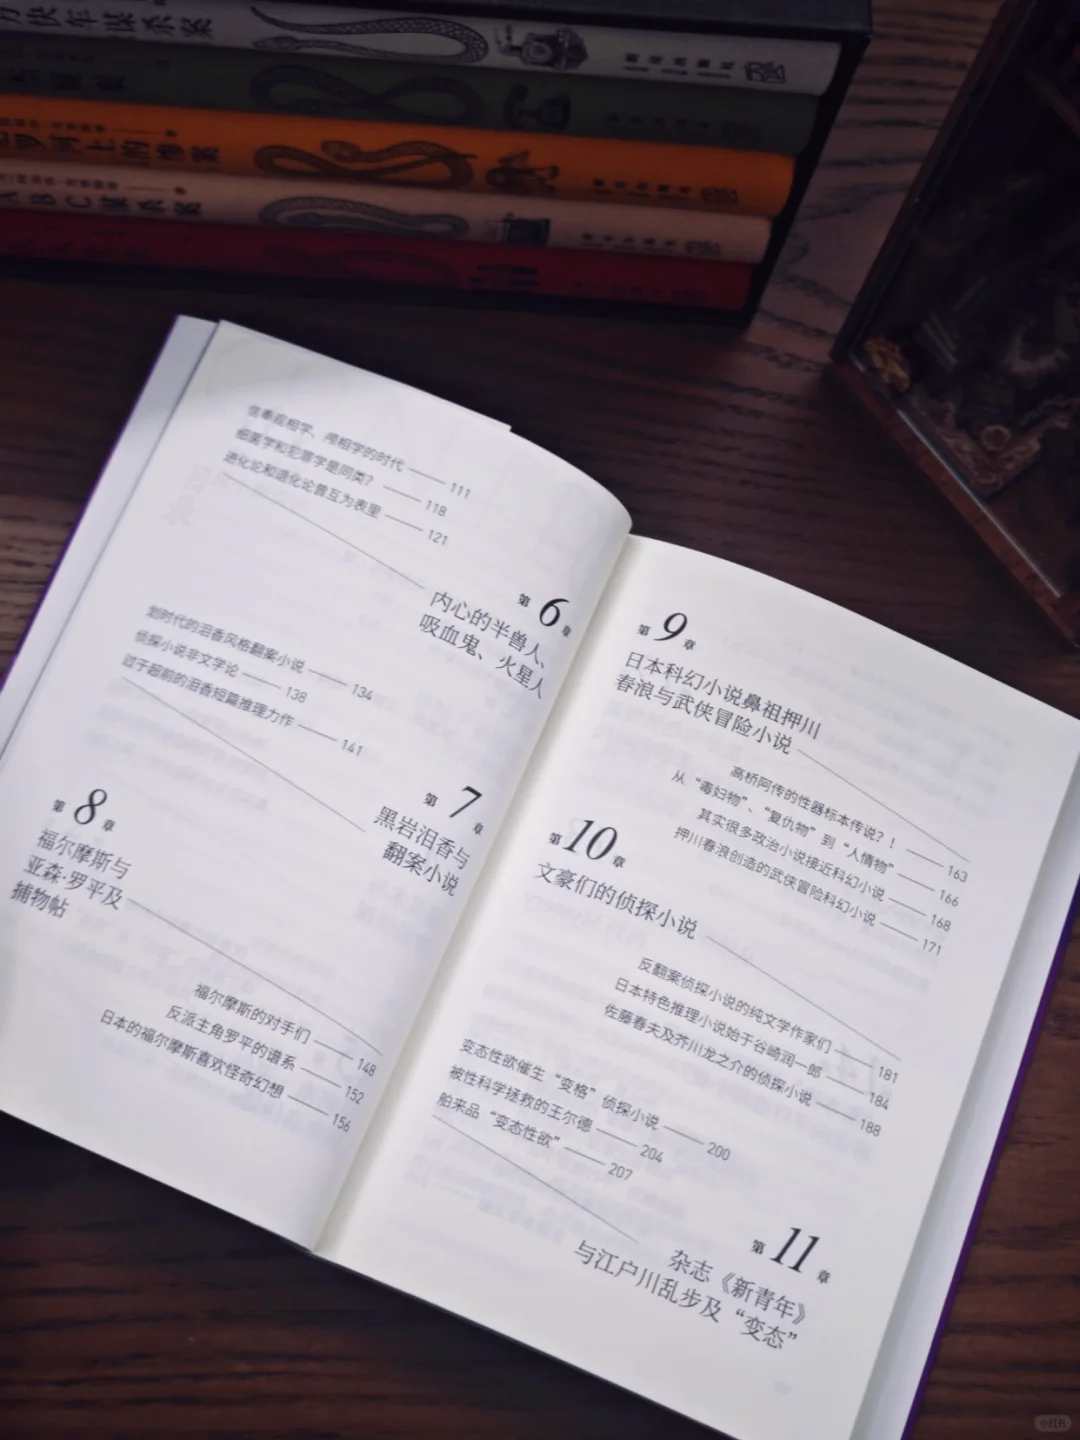 快车谋杀案
河上的惨案
ABC谋杀案
信奉观相学、颅相学的时代 —— 111
细菌学和犯罪学是同类？ —— 118
进化论和退化论曾互为表里 —— 121
第6章
内心的半兽人、
吸血鬼、火星人
划时代的泪香风格翻案小说 —— 134
侦探小说非文学论 —— 138
过于超前的泪香短篇推理力作 —— 141
第7章
黑岩泪香与
翻案小说
第8章
福尔摩斯与
亚森·罗平及
捕物帖
福尔摩斯的对手们 —— 148
反派主角罗平的谱系 —— 152
日本的福尔摩斯喜欢怪奇幻想 —— 156
第9章
日本科幻小说鼻祖押川
春浪与武侠冒险小说
高桥阿传的性器标本传说？！ —— 163
从“毒妇物”、“复仇物”到“人情物” —— 166
其实很多政治小说接近科幻小说 —— 168
押川春浪创造的武侠冒险科幻小说 —— 171
第10章
文豪们的侦探小说
反翻案侦探小说的纯文学作家们 —— 181
日本特色推理小说始于谷崎润一郎 —— 184
佐藤春夫及芥川龙之介的侦探小说 —— 188
变态性欲催生“变格”侦探小说 —— 200
被性科学拯救的王尔德 —— 204
舶来品“变态性欲” —— 207
第11章
杂志《新青年》
与江户川乱步及“变态”
小红书